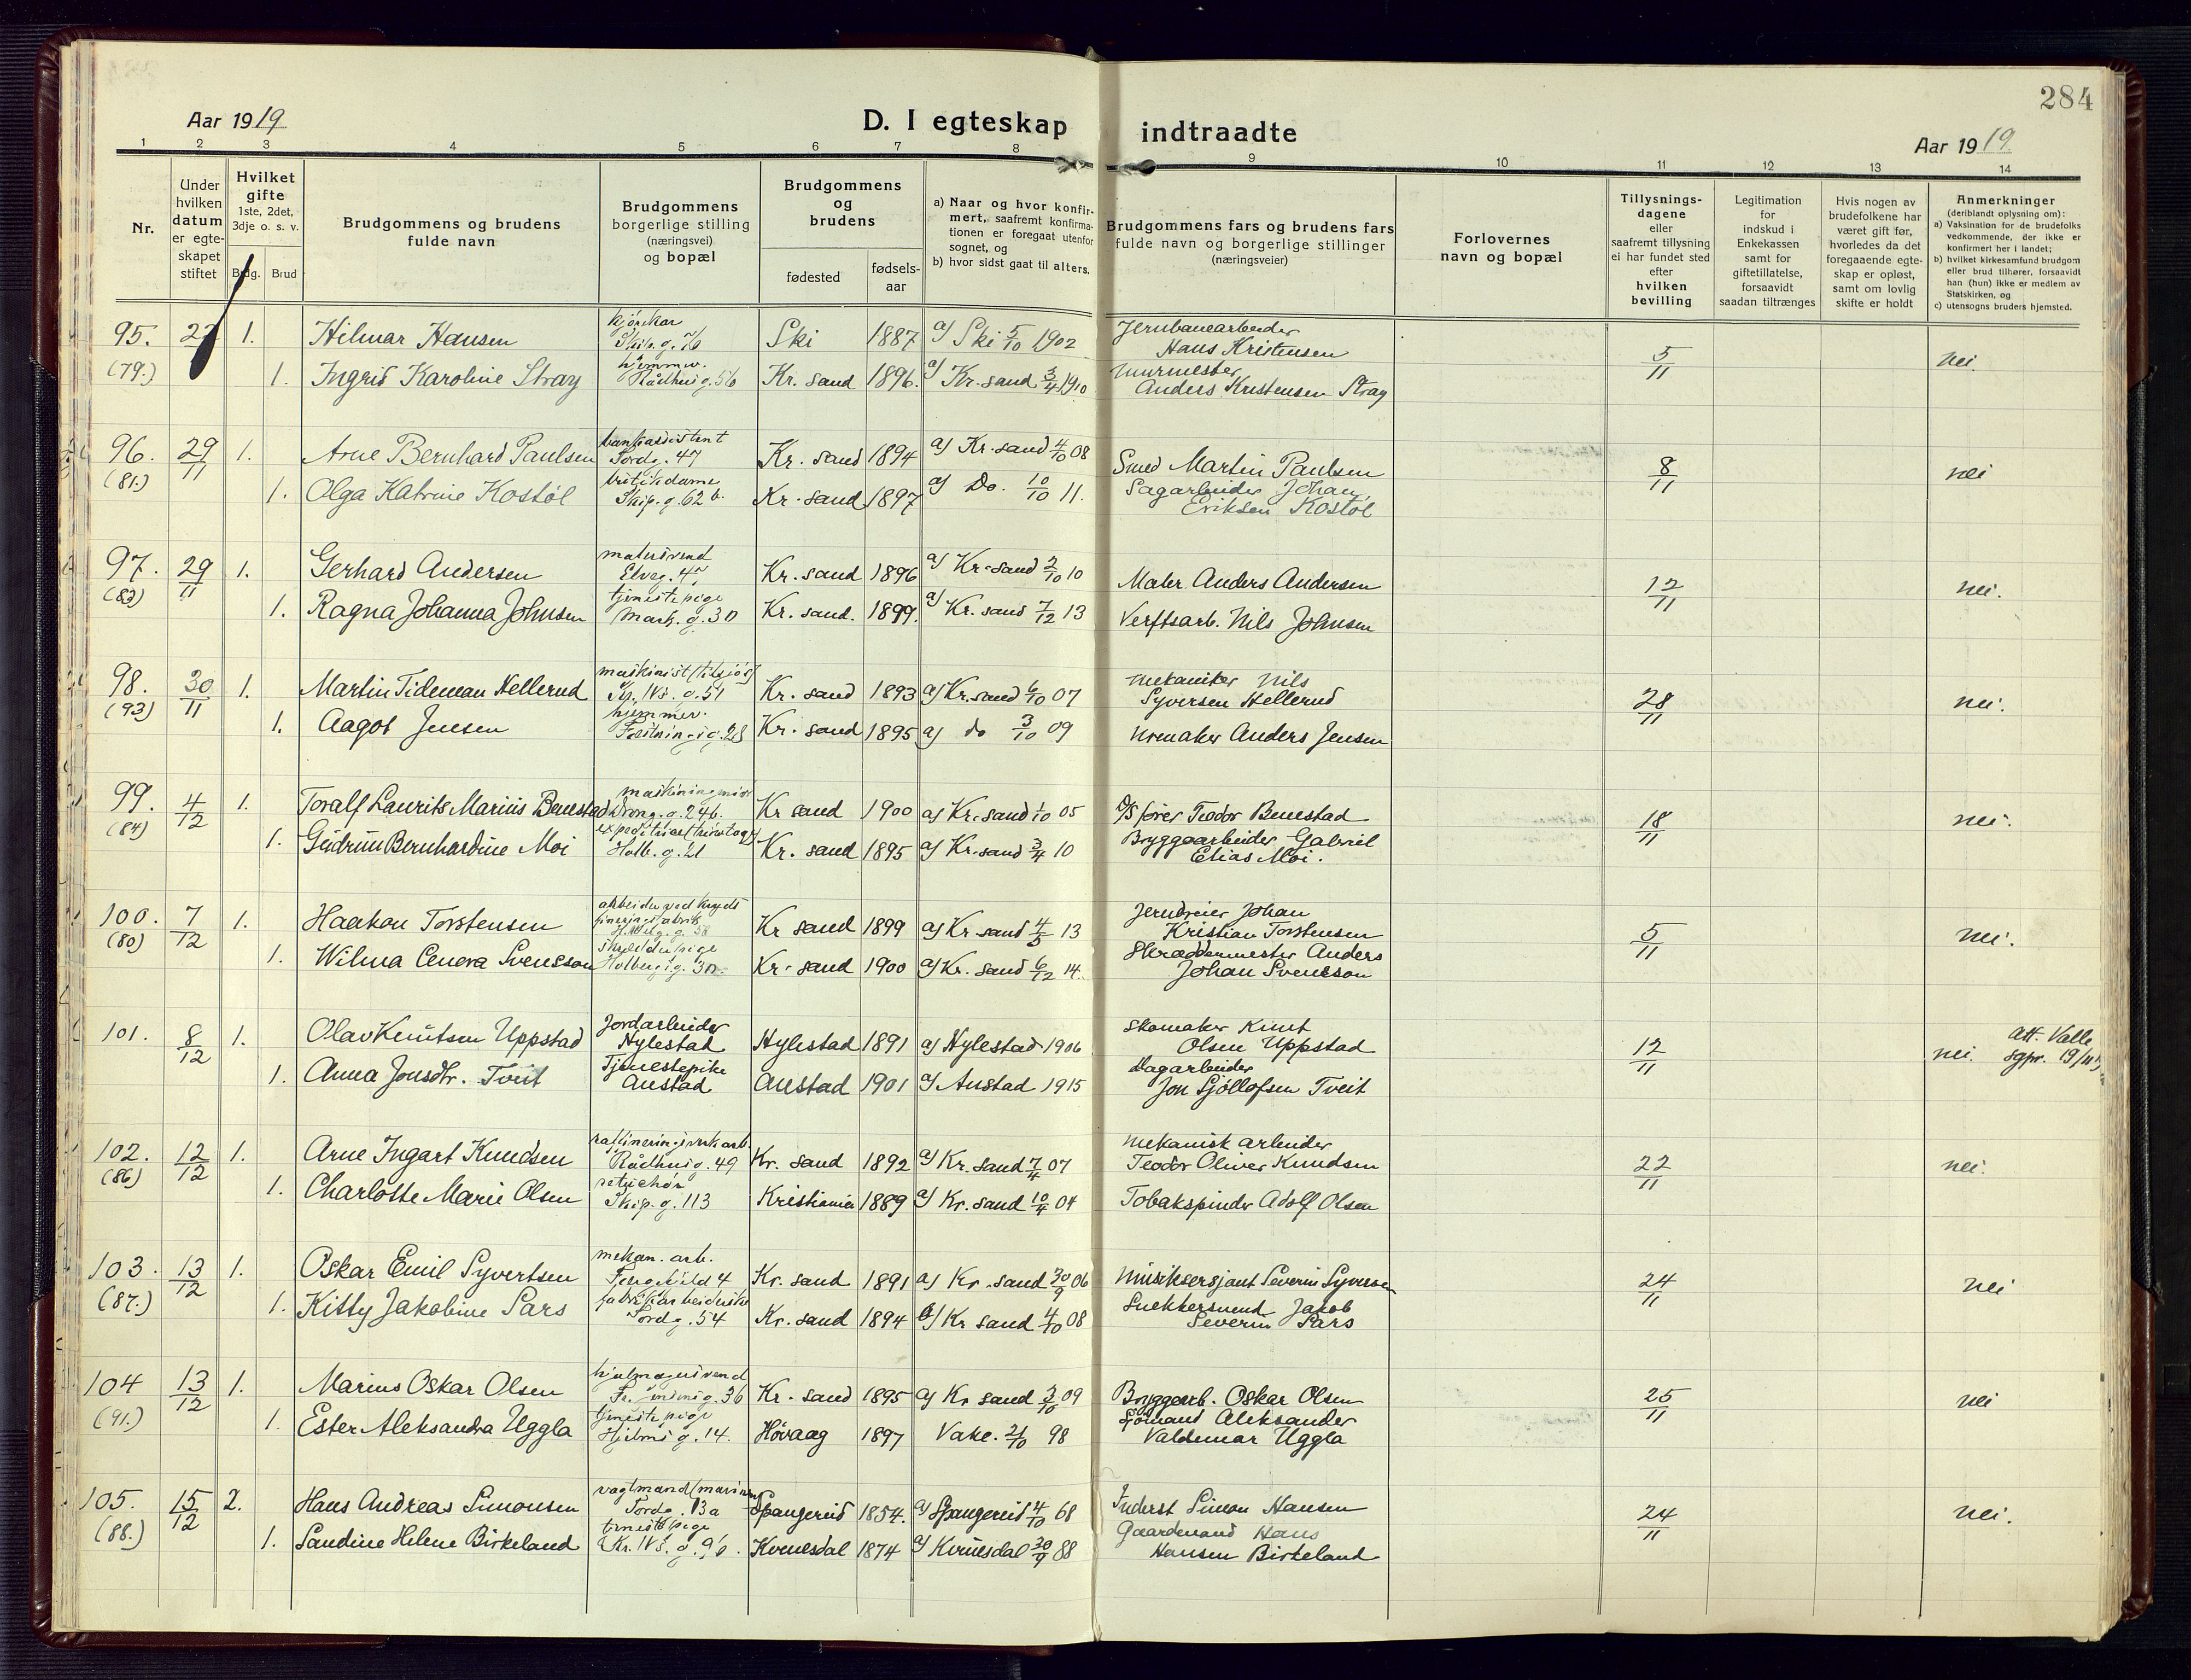 284
Aar 1919
D. I egteskap indtraadte
Aar 1919.
1 2 3 4 5 6 7 8 9 10 11 12 13 14
Nr.
Under
hvilken
datum
er egte-
skapet
stiftet
Hvilket
gifte
1ste, 2det,
3dje o. s. v.
Brudg. Brud
Brudgommens og brudens
fulde navn
Brudgommens
borgerlige stilling
(næringsvei)
og bopæl
Brudgommens
og
brudens
fødested
fødsels-
aar
a) Naar og hvor konfir-
mert, saafremt konfirma-
tionen er foregaat utenfor
sognet, og
b) hvor sidst gaat til alters.
Brudgommens fars og brudens fars
fulde navn og borgerlige stillinger
(næringsveier)
Forlovernes
navn og bopæl
Tillysnings-
dagene
eller
saafremt tillysning
ei har fundet sted
efter
hvilken
bevilling
Legitimation
for
indskud i
Enkekassen
samt for
giftetillatelse,
forsaavidt
saadan tiltrænges
Hvis nogen av
brudefolkene har
været gift før,
hvorledes da det
foregaaende egte-
skap er opløst,
samt om lovlig
skifte er holdt
Anmerkninger
(deriblandt oplysning om):
a) Vaksination for de brudefolks
vedkommende, der ikke er
konfirmert her i landet;
b) hvilket kirkesamfund brudgom
eller brud tilhører, forsaavidt
han (hun) ikke er medlem av
Statskirken, og
c) utensogns bruders hjemsted.
95. 1. Hilmar Hansen Skip. g. Ski 1887 a) Ski 5/10 1902 Jernbanearbeider
Hans Kristensen 5/11 nei.
(79.) 1. Ingrid Karoline Stray Rådhusg. 56 Kr. sand 1896. a) Kr. sand 3/4 1910 Murmester
Anders Kristensen Stray
96. 29/11 1. Arne Bernhard Paulsen bankassistent
Tordg. 47 Kr. sand 1894 a) Kr. sand 4/10 08 Smed Martin Paulsen 8/11 nei
(81.) 1. Olga Katrine Kostöl butikdame
Skip. g. 62 b. Kr. sand 1897 a) Do. 10/10 11. Sagarbeider Johan
Eriksen Kostöl
97. 29/11 1. Gerhard Andersen malersvend
Elveg. 47 Kr. sand 1896 a) Kr. sand 2/10 10 Maler Anders Andersen 12/11 nei.
(83) 1. Ragna Johanna Johnsen tjenestepige
Mark. g. 30 Kr. sand. 1899. a) Kr. sand 7/12 13 Verftsarb. Nils Johnsen
98. 30/11 1. Martin Tideman Hellerud maskinist (tilsjös)
g. 51 Kr. sand 1893 a) Kr. sand 6/10 07 Mekaniker Nils
Syversen Hellerud 28/11 nei.
(93) 1. Aagot Jensen hjemmev.
Festningsg. 28 Kr. sand 1895 a) do 3/10 09 Urmaker Anders Jensen
99. 4/12 1. Toralf Laurits Marius Benestad maskiningeniör
Dronn. g. 24b. Kr sand 1900 a) Kr. sand 1/10 05 D/S förer Teodor Benestad 18/11 nei.
(84) 1. Gudrun Bernhardine Moi
Holb. g. 21 Kr. sand 1895 a) Kr. sand 3/4 10 Bryggearbeider Gabriel
Elias Moi.
100. 7/12 1. Haakon Torstensen arbeider ved
Kr sand 1899 a) Kr sand 4/5 13 Jerndreier Johan
Kristian Torstensen 5/11 nei.
(80) 1. Wilma Cenora Svensson
Holbergsg. 30 Kr. sand 1900 a) Kr. sand 6/12 14. Skræddermester Anders
Johan Svensson
101. 8/12 1. Olav Knutsen Uppstad Jordarbeider
Hylestad Hylestad 1891 a) Hylestad 1906 Skomaker Knut
Olsen Uppstad 12/11 nei. Att. Valle
sgpr. 19/11
1. Anna Jonsdtr. Tveit Tjenestepike
Austad Austad 1901 a) Austad 1915 Dagarbeider
Jon Sjöllofsen Tveit
102. 12/12 1. Arne Ingart Knudsen raffineringsverk arb.
Rådhusg. 49 Kr. sand 1892 a) Kr. sand 7/4 07 Mekanisk arbeider
Teodor Oliver Knudsen 22/11 nei.
(86) 1. Charlotte Marie Olsen
Skip. g. 113 Kristiania 1889 a) Kr. sand 10/4 04 Tobakspinder Adolf Olsen
103. 13/12 1. Oskar Emil Syvertsen mekan. arb.
4 Kr. sand 1891 a) Kr. sand 30/9 06 Musiksersjant Severin Syversen 24/11 nei
(87.) 1. Kitty Jakobine Sars fabrikarbeiderske
Tordg. 54 Kr. sand 1894 a) Kr sand 4/10 08 Snekkersvend Jakob
Severin Sars
104 13/12 1. Marius Oskar Olsen hjulmagersvend
36 Kr. sand 1895 a) Kr sand 3/10 09 Bryggearb. Oskar Olsen 25/11 nei
(91.) 1. Ester Aleksandra Uggla tjenestepige
g. 14. Hövaag 1897 Vake. 21/10 98 Sjömand Aleksander
Valdemar Uggla
105. 15/12 2. Hans Andreas Simonsen vagtmand (marinen)
Tordg. 13a Spangereid 1854. a) Spangereid 4/10 68 Inderst Simon Hansen 24/11 nei.
(88.) 1. Sandine Helene Birkeland tjenestepige
Kr. IVs. g. 96. Kvinesdal 1874 a) Kvinesdal 30/9 88 Gaardmand Hans
Hansen Birkeland